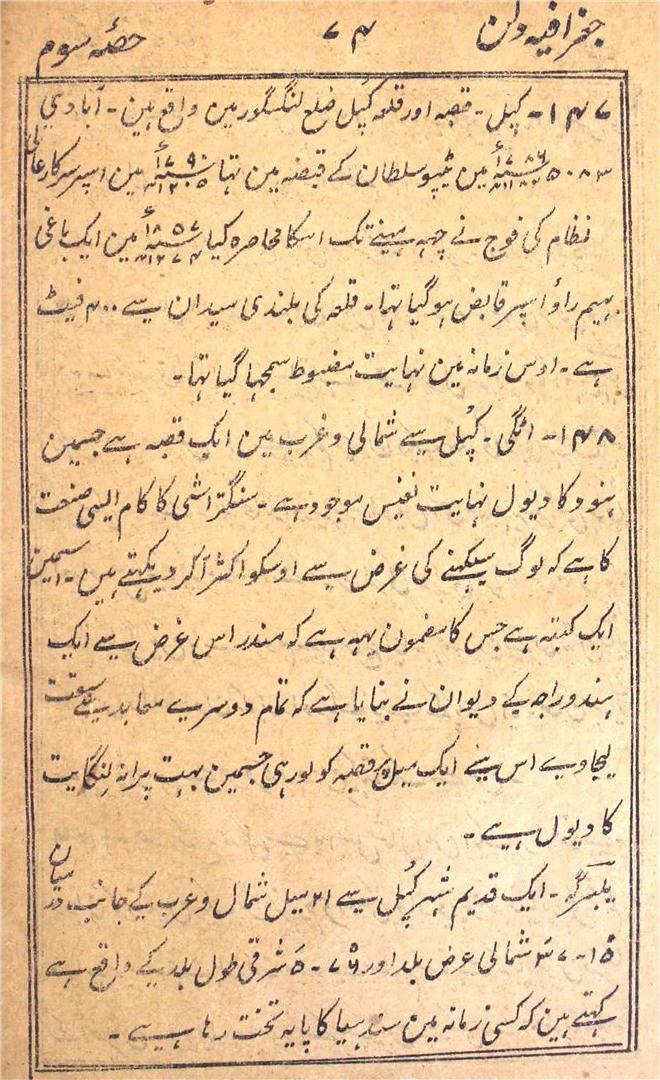 جغرافیہ دکن ۷۴ حصہ سوم
۱۴۷- کپل - قصبہ اور قلعہ کُپل ضلع لنگسگور مین واقع ہین - آبادی
۵۰۸۳ ۱۷۸۶ء مین ٹیپو سلطان کے قبضہ مین تہا ۱۷۹۰ء ۱۲۰۵ھ مین اسپر سرکار عالی
نظام کی فوج نے چہہ مہینے تک اسکا محاصرہ کیا ۱۸۵۷ء ۱۲۷۴ھ مین ایک باغی
بہیم راؤ اسپر قابض ہو گیا تہا - قلعہ کی بلندی میدان سے ۴۰۰ فیٹ
ہے - اوس زمانہ مین نہایت مضبوط سمجہا گیا تہا -
۱۴۸- اٹگی - کپُل سے شمالی و غرب مین ایک قصبہ ہے جسمین
ہنود کا دیول نہایت نفیس موجود ہے - سنگتراشی کا کام ایسی صنعت
کا ہے کہ لوگ سیکہنے کی غرض سے اوسکو اکثر آکر دیکہتے ہین - اسمین
ایک کتبہ ہے جس کا مضمون یہہ ہے کہ مندر اس غرض سے ایک
ہندو راجہ کے دیوان نے بنایا ہے کہ تمام دوسرے معابد سے سبقت
لیجاوے اس سے ایک میل پر قصبہ کولور ہی جسمین بہت پرانہ لنگایت
کا دیول ہے -
یلبرگہ - ایک قدیم شہر کپُل سے ۲۱ میل شمال و غرب کے جانب درمیان
۱۵-۳۷ شمالی عرض بلد اور ۷۶-۵ شرقی طول بلد کے واقع ہے
کہتے ہین کہ کسی زمانہ مین سندہیا کا پایہ تخت رہا ہے -